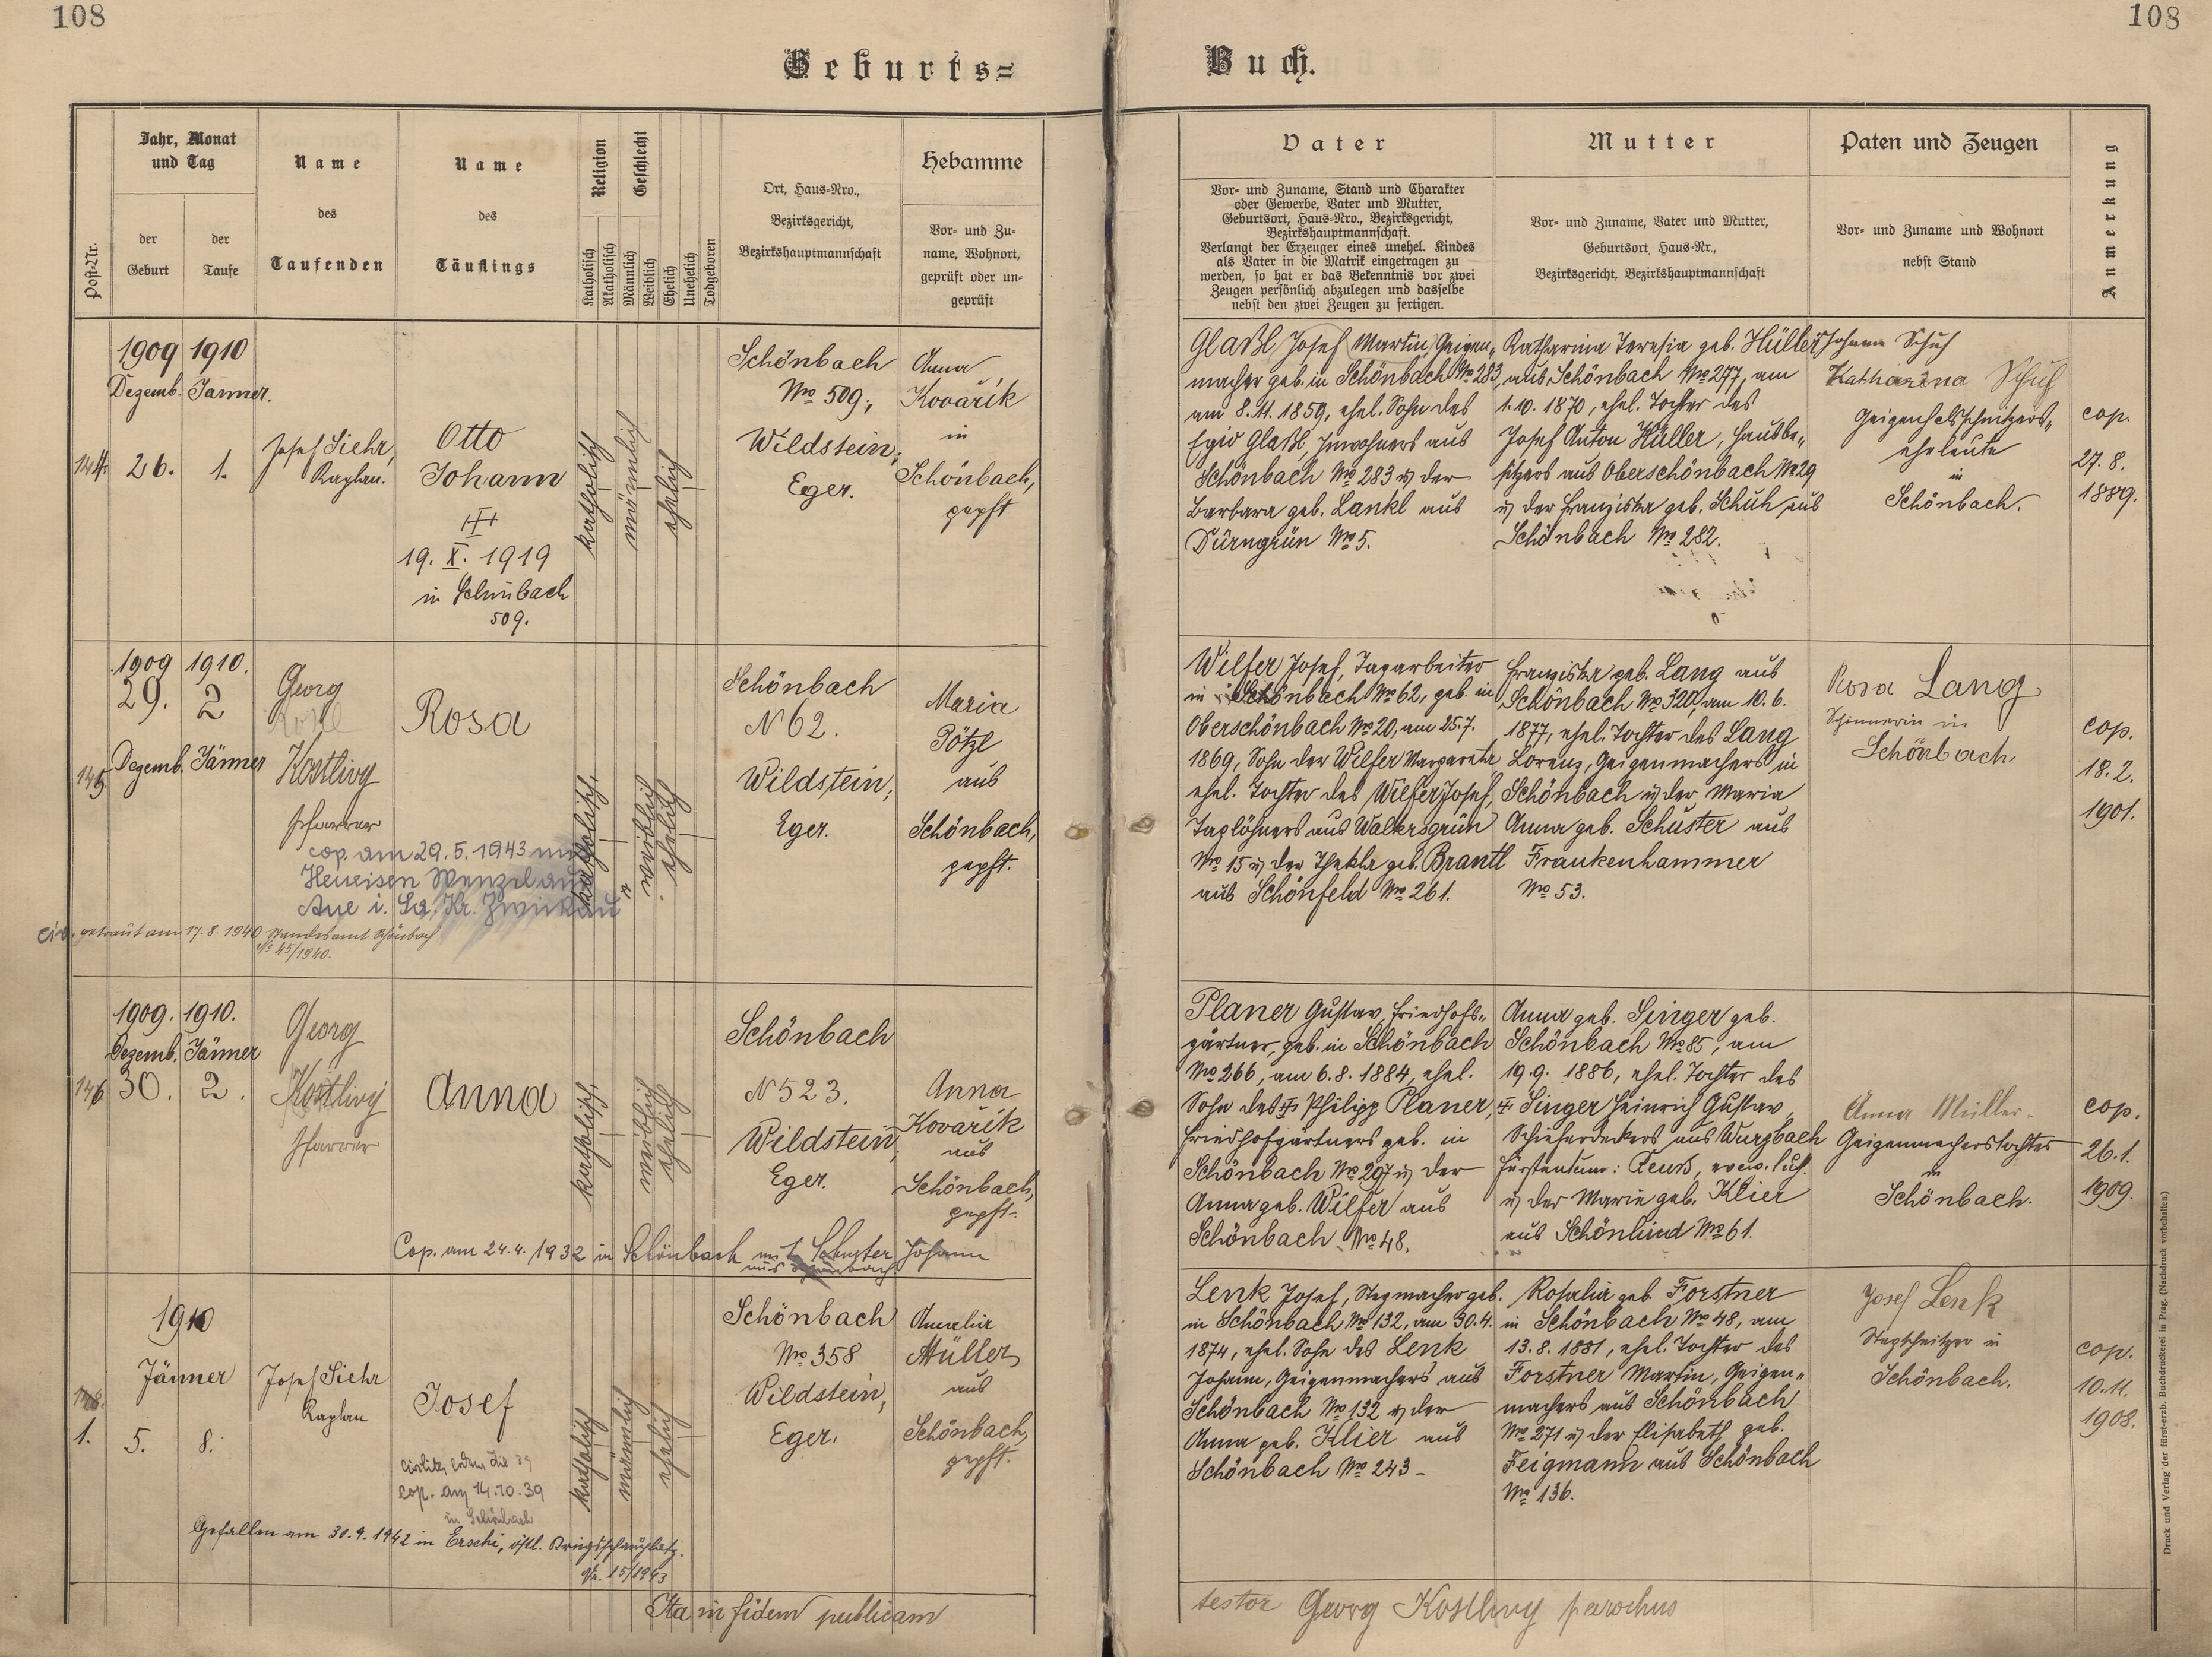 108
108
Geburts=
Buch.
Post-Nr.
Jahr, Monat
und Tag
der
Geburt
der
Taufe
Name
des
Taufenden
Name
des
Täuflings
Religion
Katholisch
Akatholisch
Geschlecht
Männlich
Weiblich
Ehelich
Unehelich
Todgeboren
Ort, Haus-Nro.,
Bezirksgericht,
Bezirkshauptmannschaft
Hebamme
Vor- und Zu-
name, Wohnort,
geprüft oder un-
geprüft
Vater
Vor- und Zuname, Stand und Charakter
oder Gewerbe, Vater und Mutter,
Geburtsort, Haus-Nro., Bezirksgericht,
Bezirkshauptmannschaft.
Verlangt der Erzeuger eines unehel. Kindes
als Vater in die Matrik eingetragen zu
werden, so hat er das Bekenntnis vor zwei
Zeugen persönlich abzulegen und dasselbe
nebst den zwei Zeugen zu fertigen.
Mutter
Vor- und Zuname, Vater und Mutter,
Geburtsort, Haus-Nr.,
Bezirksgericht, Bezirkshauptmannschaft
Paten und Zeugen
Vor- und Zuname und Wohnort
nebst Stand
Anmerkung
144.
1909 1910
Dezemb. Jänner.
26. 1.
Josef Siehr,
Kaplan.
Otto
Johann
19. X. 1919
in Schönbach
509.
katholisch
männlich
ehelich
Schönbach
No 509.,
Wildstein,
Eger.
Anna
Kovařík
in
Schönbach,
gepft
Glaßl Josef (Martin) Geigen„
macher geb. in Schönbach No 283,
am 8.11.1859, ehel. Sohn des
Egid Glaßl, Inwohners aus
Schönbach No 283 u der
Barbara geb. Lankl aus
Dürngrün No 5.
Katharina Teresia geb. Hüller
aus Schönbach No 277, am
1.10.1870, ehel. Tochter des
Josef Anton Hüller, Hausbe„
sitzers aus Oberschönbach No 29
u der Franziska geb. Schuh aus
Schönbach No 282.
Johann Schuh
Katharina Schuh
Geigenhalsschnitzers„
eheleute
in
Schönbach.
cop.
27.8.
1889.
145
1909 1910.
29. 2
Dezemb. Jänner
Georg
Kostlivy
Pfarrer
Rosa
cop. am 29.5.1943 mit
Heueisen Wenzel aus
Aue i. Sa. Kr. Zwickau
civ. getraut am 17.8.1940 Standesamt Schönbach
No 45/1940.
katholisch,
weiblich
ehelich
Schönbach
N 62.
Wildstein,
Eger.
Maria
Pötzl
aus
Schönbach,
gepft.
Wilfer Josef, Tagarbeiter
in Schönbach No 62, geb. in
Oberschönbach No 20, am 25.7.
1869, Sohn der Wilfer Margaretha,
ehel. Tochter des Wilfer Josef,
Taglöhners aus Waltersgrün
No 15 u der Thekla geb. Brantl
aus Schönfeld No 261.
Franziska geb. Lang aus
Schönbach No 320, am 10.6.
1877, ehel. Tochter des Lang
Lorenz, Geigenmachers in
Schönbach u der Maria
Anna geb. Schuster aus
Frankenhammer
No 53.
Rosa Lang
in
Schönbach
cop.
18.2.
1901.
146
1909. 1910.
Dezemb. Jänner
30. 2.
Georg
Kostlivý
Pfarrer
Anna
katholisch,
weiblich
ehelich
Schönbach
N 523.
Wildstein,
Eger.
Anna
Kovařík
aus
Schönbach,
gepft.
Cop. am 24.4.1932 in Schönbach mit Schuster Johann
aus Schönbach.
Planer Gustav, Friedhofs„
gärtner, geb. in Schönbach
No 266, am 6.8.1884, ehel.
Sohn des Philipp Planer,
Friedhofgärtners geb. in
Schönbach No 297 u der
Anna geb. Wilfer aus
Schönbach No 48.
Anna geb. Singer geb.
Schönbach No 85, am
19.9. 1886, ehel. Tochter des
Singer Heinrich Gustav,
Schieferdeckers aus Wurzbach
Fürstentum: Reuß, evang. luth.
u der Marie geb. Klier
aus Schönlind No 61.
Anna Müller
Geigenmacherstochter
in
Schönbach.
cop.
26.1.
1909.
1.
1910
Jänner
5. 8.
Josef Siehr
Kaplan
Josef
cop. am 14.10.39
in Schönbach
Gefallen am 30.9.1942 in Erschi, östl. Kriegsschauplatz.
Nr. 15/1943
katholisch
männlich
ehelich
Schönbach
No 358
Wildstein,
Eger.
Amalia
Müller
aus
Schönbach,
gepft.
Lenk Josef, Stegmacher geb.
in Schönbach No 132, am 30.4.
1874, ehel. Sohn des Lenk
Johann, Geigenmachers aus
Schönbach No 132 u der
Anna geb. Klier aus
Schönbach No 243 -
Rosalia geb. Forstner
in Schönbach No 48, am
13.8.1881, ehel. Tochter des
Forstner Martin, Geigen„
machers aus Schönbach
No 271 u der Elisabeth geb.
Feigmann aus Schönbach
No 136.
Josef Lenk
Stegschnitzer in
Schönbach.
cop.
10.11.
1908.
Ita in fidem publicam
testor Georg Kostlivy parochus
Druck und Verlag der fürst-erzb. Buchdruckerei in Prag. (Nachdruck vorbehalten.)